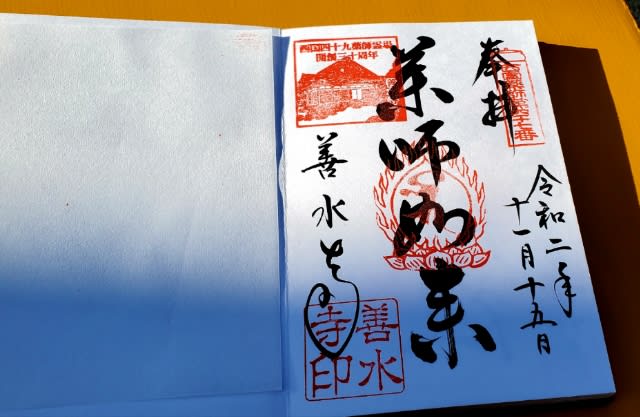 奉拝
令和二年
十一月十五日
薬師如来
西国四十九薬師霊場
開創三十周年
善水寺
善水
寺印